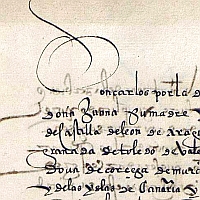 Don carlos por la d
doña Juana su madre
de castilla de leon de arag
granada de toledo de vale
doua de corcega de murc
y de las yslas de Canaria y